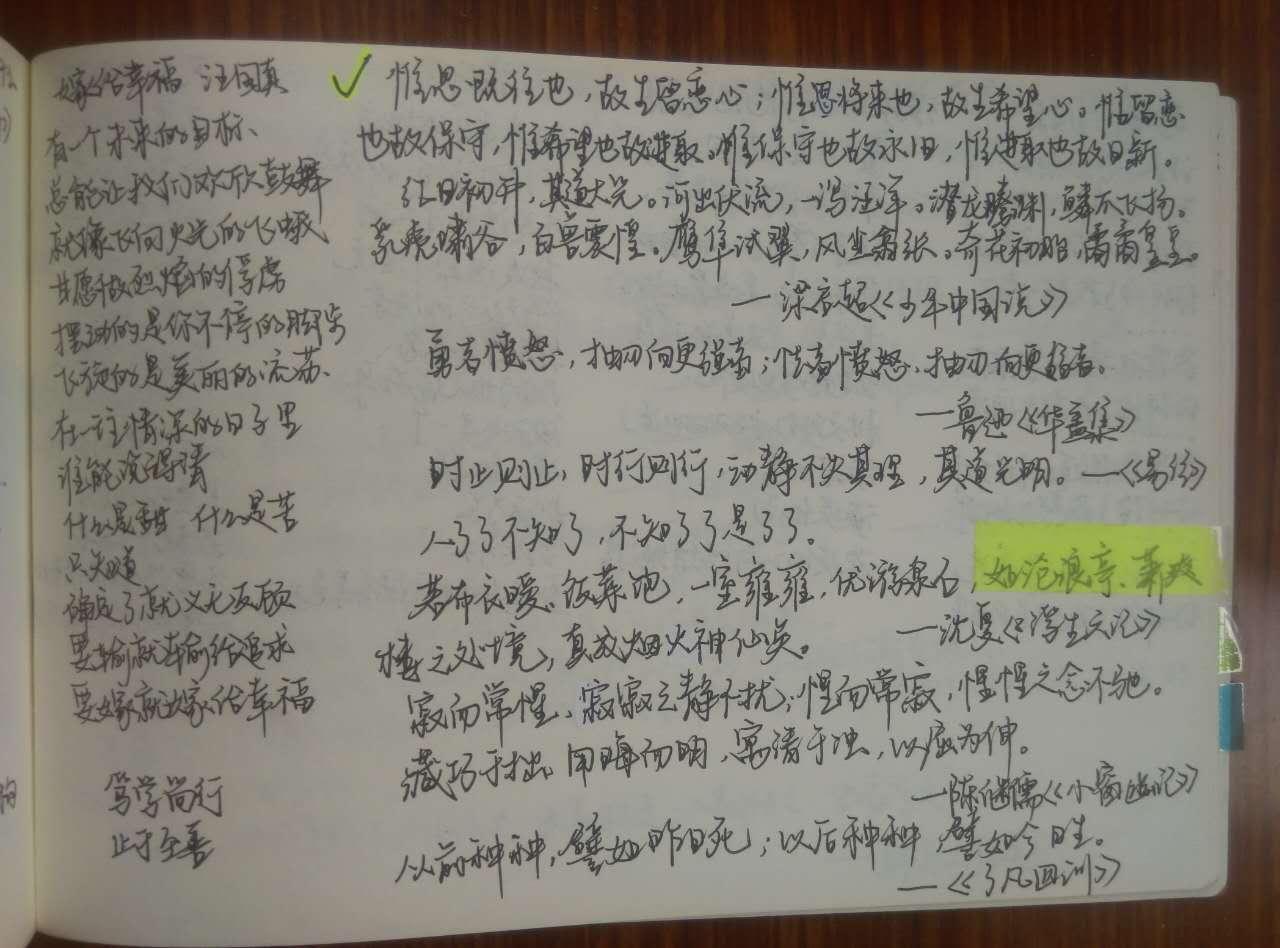 嫁给幸福 汪国真
有一个未来的目标、
总能让我们欢欣鼓舞
就像飞向火光的飞蛾
甘愿做烈焰的俘虏
摆动的是你不停的脚步
飞旋的是美丽的流苏、
在一往情深的日子里
谁能说得清
什么是甜 什么是苦
只知道
确定了就义无反顾
要输就输给追求
要嫁就嫁给幸福
笃学尚行
止于至善
惟思既往也，故生留恋心；惟思将来也，故生希望心。惟留恋
也故保守，惟希望也故进取。惟保守也故永旧，惟进取也故日新。
红日初升，其道大光。河出伏流，一泻汪洋。潜龙腾渊，鳞爪飞扬。
乳虎啸谷，百兽震惶。鹰隼试翼，风尘翕张。奇花初胎，矞矞皇皇。
—梁启超《少年中国说》
勇者愤怒，抽刃向更强者；怯者愤怒，抽刃向更弱者。
—鲁迅《华盖集》
时止则止，时行则行，动静不失其理，其道光明。—《易经》
人了了不知了，不知了了是了了。
若布衣暖、饭菜饱，一室雍雍，优游泉石，如沧浪亭、萧爽
楼之处境，真成烟火神仙矣。
—沈复《浮生六记》
寂而常惺，寂寂之静不扰；惺而常寂，惺惺之念不驰。
藏巧于拙，用晦而明，寓清于浊，以屈为伸。
—陈继儒《小窗幽记》
从前种种，譬如昨日死；以后种种，譬如今日生。
—《了凡四训》